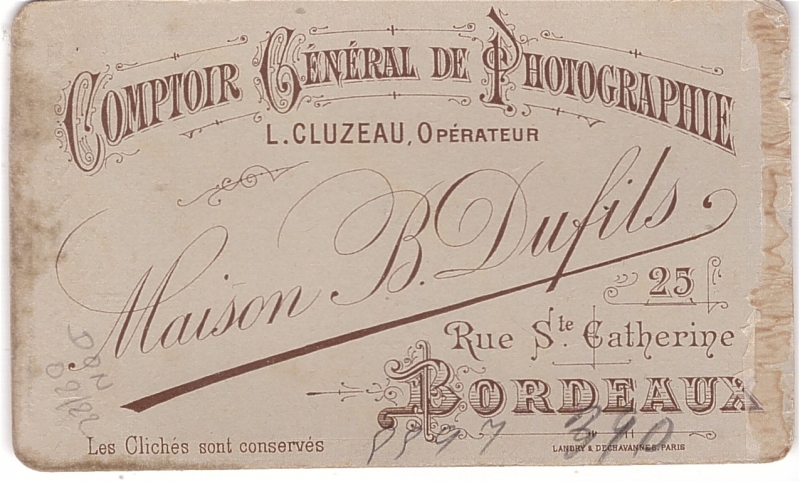 COMPTOIR GÉNÉRAL DE PHOTOGRAPHIE
L. CLUZEAU, OPÉRATEUR
Maison B. Dufils
25
Rue Ste. Catherine
BORDEAUX
Les Clichés sont conservés
LANDRY & DECHAVANNES, PARIS